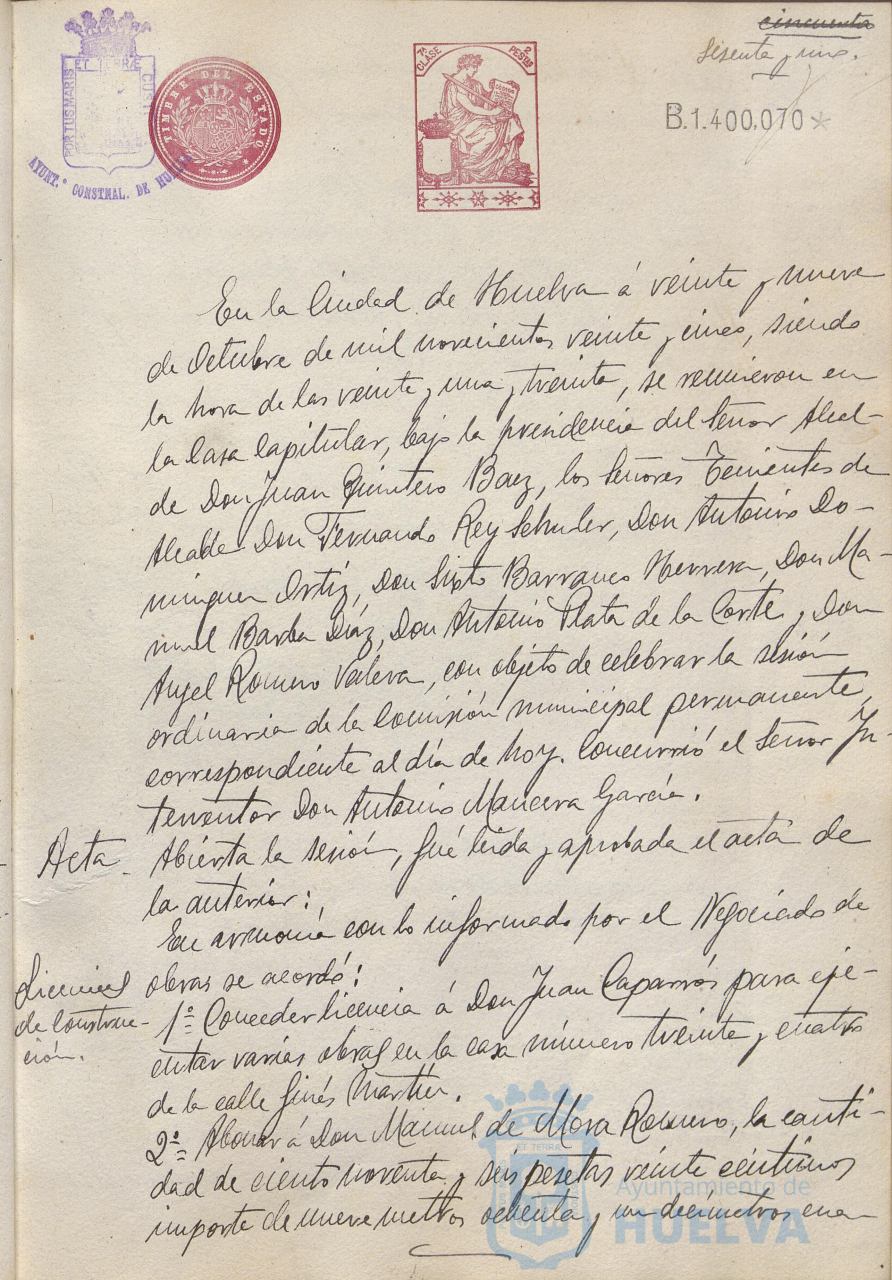 cincuenta
sesenta y uno.
ET TERRÆ CUSTO
PORTUS MARIS
AYUNT.º CONSTNAL. DE HUELVA
TIMBRE DEL ESTADO
7ª CLASE
2 PESTAS
B.1.400,070
En la Ciudad de Huelva á veinte y nueve
de Octubre de mil novecientos veinte y cinco, siendo
la hora de las veinte y una y treinta, se reunieron en
la Casa Capitular, bajo la presidencia del Señor Alcal-
de Don Juan Quintero Baez, los Señores Tenientes de
Alcalde Don Fernando Rey Schuler, Don Antonio Do-
minguez Ortiz, Don Sixto Barranco Herrera, Don Ma-
nuel Barba Díaz, Don Antonio Plata de la Corte y Don
Angel Romero Valera, con objeto de celebrar la sesión
ordinaria de la Comisión municipal permanente,
correspondiente al día de hoy. Concurrió el Señor In-
terventor Don Antonio Mancera García.
Acta.
Abierta la sesión, fué leida y aprobada el acta de
la anterior:
En armonía con lo informado por el Negociado de
obras se acordó:
Licencias
de Construc-
ción.
1º= Conceder licencia á Don Juan Caparrós para eje-
cutar varias obras en la casa número treinta y cuatro
de la calle Ginés Martín.
2º= Abonar á Don Manuel de Mora Romero, la canti-
dad de ciento noventa y seis pesetas veinte céntimos
importe de nueve metros ochenta y un decímetros cua-
ET TERRA
Ayuntamiento de
HUELVA